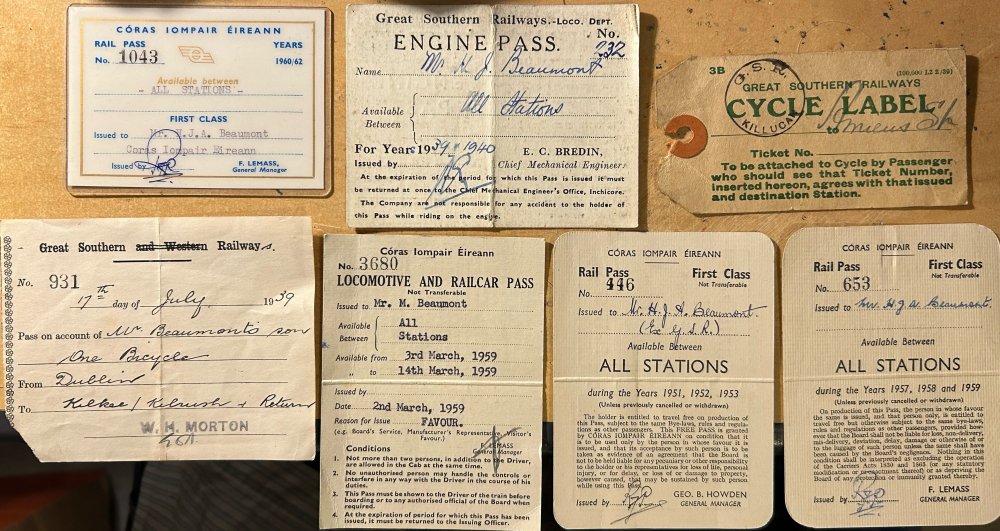 CÓRAS IOMPAIR ÉIREANN
RAIL PASS YEARS
No. 1043 1960/62
Available between
- ALL STATIONS -
FIRST CLASS
Issued to Mr. H.J.A. Beaumont
Coras Iompair Eireann
Issued by F. LEMASS,
General Manager
Great Southern Railways.-LOCO. DEPT.
ENGINE PASS. No. 232
Name Mr. H. J. Beaumont
Available Between All Stations
For Years 1939 " 1940 E. C. BREDIN,
Issued by Chief Mechanical Engineer
At the expiration of the period for which this Pass is issued it must
be returned at once to the Chief Mechanical Engineer's Office, Inchicore.
The Company are not responsible for any accident to the holder of
this Pass while riding on the engine.
3B (100,000 L2 2/39)
G. S. R.
KILLUCAN
GREAT SOUTHERN RAILWAYS
CYCLE LABEL
to
Ticket No.
To be attached to Cycle by Passenger
who should see that Ticket Number,
inserted hereon, agrees with that issued
and destination Station.
Great Southern and Western Railways.
No. 931
17th day of July, 1939
Pass on account of Mr Beaumont's son
One Bicycle
From Dublin
To Kilkee / Kilrush & Return
W. H. MORTON
Córas Iompair Éireann
No. 3680
LOCOMOTIVE AND RAILCAR PASS
Not Transferable
Issued to Mr. M. Beaumont
Available Between All Stations
Available from 3rd March, 1959
" to 14th March, 1959
Issued by
Date 2nd March, 1959
Reason for Issue FAVOUR.
(e.g. Board's Service, Manufacturer's Representative, Visitor's
Favour.)
F. LEMASS
General Manager
Conditions
1. Not more than two persons, in addition to the Driver,
are allowed in the Cab at the same time.
2. No unauthorised person may handle the controls or
interfere in any way with the Driver in the course of his
duties.
3. This Pass must be shown to the Driver of the train before
boarding or to any authorised official of the Board when
required.
4. At the expiration of period for which this Pass has been
issued, it must be returned to the Issuing Officer.
CÓRAS IOMPAIR ÉIREANN
Rail Pass First Class
No. 446 Not Transferable
Issued to Mr. H. J. A. Beaumont.
(Ex G.S.R.)
Available Between
ALL STATIONS
during the Years 1951, 1952, 1953
(Unless previously cancelled or withdrawn)
The holder is entitled to travel free on production of
this Pass, subject to the same Bye-laws, rules and regula-
tions as other passengers. This FREE PASS is granted
by CÓRAS IOMPAIR ÉIREANN on condition that it
is to be used only by the person in whose favour it is
issued, and the acceptance by such person is to be
taken as evidence of an agreement that the Board is
not to be held liable for pecuniary or other responsibility
to the holder or his representatives for loss of life, personal
injury, or for delay, or loss of or damage to property,
however caused, that may be sustained by such person
while using this Pass.
GEO. B. HOWDEN
Issued by GENERAL MANAGER
CÓRAS IOMPAIR ÉIREANN
Rail Pass First Class
No. 653 Not Transferable
Issued to Mr. H. J. A. Beaumont.
Available Between
ALL STATIONS
during the Years 1957, 1958 and 1959
(Unless previously cancelled or withdrawn)
On production of this Pass, the person in whose favour
the same is issued, and that person only, is entitled to
travel free but otherwise subject to the same bye-laws,
rules and regulations as other passengers, provided how-
ever that the Board shall not be liable for loss, non-delivery,
mis-delivery, deviation, delay, damage or otherwise of or
to the luggage of such person unless the same has been
caused by the Board's negligence. Nothing in this
condition shall be interpreted as excluding the operation
of the Carriers Acts 1830 and 1865 (or any statutory
modification or re-enactment thereof) or as depriving the
Board of any protection or immunity granted thereby.
F. LEMASS
Issued by GENERAL MANAGER